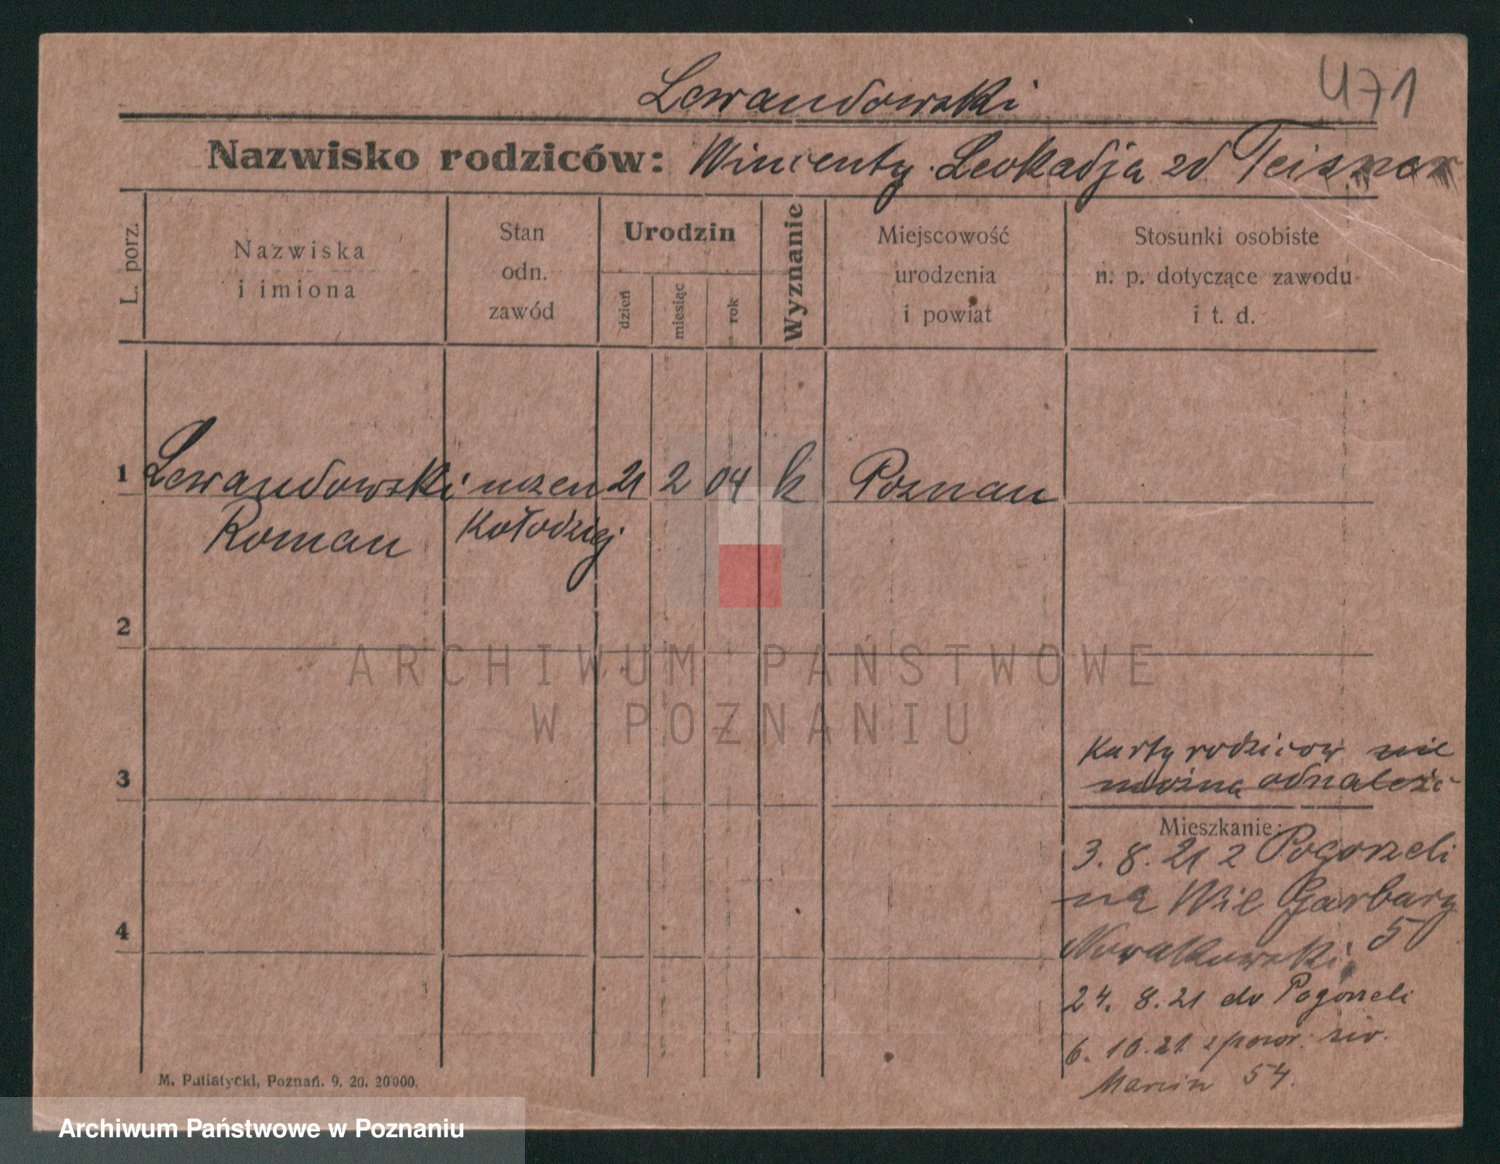 471
Lewandowski
Nazwisko rodziców: Wincenty Leokadja zd
L. porz.
Nazwiska i imiona
Stan odn. zawód
Urodzin
dzień
miesiąc
rok
Wyznanie
Miejscowość urodzenia i powiat
Stosunki osobiste n. p. dotyczące zawodu i t. d.
1 Lewandowski 21 2 04 k Poznan
Roman Kołodziej
2
3
4
Karty rodzicow nie
można odnaleźć
Mieszkanie:
3. 8. 21 z Pogorzeli
na Wiel Garbary
Nowakowski 5
24. 8. 21 do Pogorzeli
6. 10. 21 z powr.
Marcin 54.
M. Putiatycki, Poznań. 9. 20. 20000.
ARCHIWUM PAŃSTWOWE
W POZNANIU
Archiwum Państwowe w Poznaniu